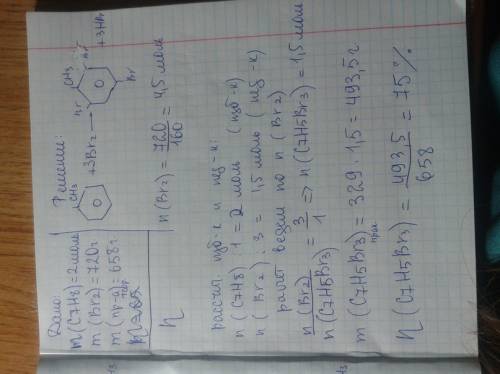 Дано:
m (C7H8) = 2 моль
m (Br2) = 720 г
m (пр-а) = 658 г
Решение:
CH3
+ 3Br2 →
CH3
Br
Br
Br
+ 3HBr
n (Br2) = 720/160 = 4,5 моль
η
рассчит. изб-к и нед-к:
n (C7H8) : 1 = 2 моль (изб-к)
n (Br2) : 3 = 1,5 моль (нед-к)
расчёт ведём по n (Br2)
n (Br2)/n (C7H5Br3) = 3/1 => n (C7H5Br3) = 1,5 моль
m (C7H5Br3) = 329 · 1,5 = 493,5 г
прак.
η (C7H5Br3) = 493,5/658 = 75 %